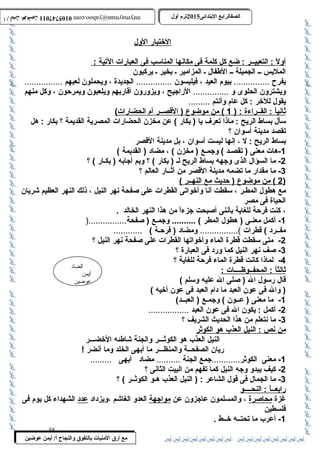 الصف الرابع الابتدائى2015ترم أول
01157670110
الاختبار الأول
أولاً : التعبيـــر : ضع كل كلمة فى مكانها المناسب فى العبارات الآتية :
الملابس – الجميلة – الأطفال - المزامير - بخير - يركبون
يفرح .............. بيوم العيد ، فيلبسون .............. الجديدة ، ويحملون لعبهم ................
ويشترون الحلوى و ............... الأراجيح ، ويزورون أقاربهم ويلعبون ويمرحون ، وكل منهم
يقول للآخر : كل عام وأنتم .........
ثانياً : القــراءة : ( 1 ) من موضوع ( الأقصــر أم الحضارات)
سأل بساط الريح : ماذا تعرف يا ( بكار ) عن مخزن الحضارات المصرية القديمة ؟ بكار : هل
تقصد مدينة أسوان ؟
بساط الريح : لا ، إنها ليست أسوان ، بل مدينة الأقصر
1-هات معنى ( تقصــد ) وجمع ( مخزن ) ، مضاد ( القديمة )
2- ما السؤال الذى وجهه بساط الريح لـ ( بكار ) ؟ وبم أجابه ( بكــار ) ؟
3- ما مقدار ما تضمه مدينة الأقصر من آثــار العالم ؟
( 2) من موضوع ( حديث مع النهــر )
مع هطول المطر ، سقطت أنا وأخواتى القطرات على صفحة نهر النيل ، ذلك النهر العظيم شريان
الحياة فى مصر
، كنت فرحة للغاية بأننى أصبحت جزءاً من هذا النهر الخالد .
1- أكمل معنى ( هطول المطر ) ......... وجمع ( صفحة...............(
مفــرد ( قطرات ...............) ومضاد ( فرحـة ) ............
2- متى سقطت قطرة الماء وأخواتها القطرات على صفحة نهر النيل ؟
3- صف نهر النيل كما ورد فى العبارة ؟
4- لماذا كانت قطرة الماء فرحة للغاية ؟
ثالثاً : المحفــوظــــات :
قال رسول الله ( صلى الله عليه وسلم )
( والله فى عون العبد ما دام العبد فى عون أخيه )
1- ما معنى ( عــون ) وجمع ( العبـد)
2- أكمل : يكون الله فى عون العبد ...............
3- ما تتعلم من هذا الحديث الشريف ؟
من نص : النيل العذب هو الكوثر
النيل العذب هو الكوثــر والجنة شاطئه الأخضــر
ريان الصفحــة والمنظــر ما أبهى الخلد وما أنضر !
1- معنى الكوثر............جمع الجنة .......... مضاد أبهى .........
2- كيف يبدو وجه النيل كما تفهم من البيت الثانى ؟
3- ما الجمال فى قول الشاعر : ( النيل العذب هـو الكوثـر ) ؟
رابعــاً : النحــــو
غزة محاصرة ، والمسلمون عاجزون عن مواجهة العدو الغاشم .ويزداد عدد الشهداء كل يوم فى
فلسطين
1- أعرب ما تحتــه خــط .
مع أرق الأمنيات بالتفوق والنجاح أ/ أيمن عوضين